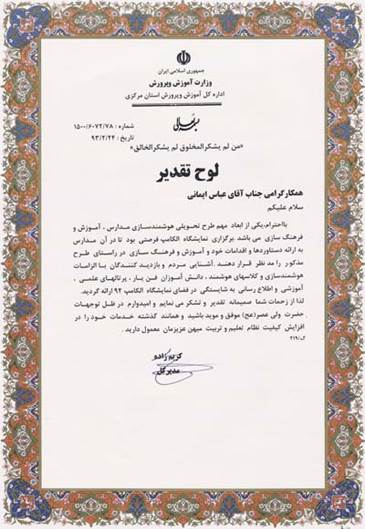 جمهوری اسلامی ایران
وزارت آموزش و پرورش
اداره کل آموزش و پرورش استان مرکزی
شماره : ۱۵۰۰/۶۰۷۲/۷۸
تاریخ : ۹۳/۲/۲۴
«من لم یشکر المخلوق لم یشکر الخالق»
لوح تقدیر
همکار گرامی جناب آقای عباس ایمانی
سلام علیکم
بااحترام،یکی از ابعاد مهم طرح تحویلی هوشمندسازی مدارس ، آموزش و
فرهنگ سازی می باشد. برگزاری نمایشگاه الکامپ فرصتی بود تا در آن مدارس
به ارائه دستاوردها و اقدامات خود و آموزش و فرهنگ سازی در راستای طرح
مذکور را مد نظر قرار دهند. آشنایی مردم و بازدید کنندگان با الزامات
هوشمندسازی و کلاسهای هوشمند، دانش آموزان فن یار، پرتالهای علمی ،
آموزشی و اطلاع رسانی به شایستگی در فضای نمایشگاه الکامپ ۹۲ ارائه گردید.
لذا از زحمات شما صمیمانه تقدیر و تشکر می نمایم و امیدوارم در ظل توجهات
حضرت ولی عصر(عج) موفق و موید باشید و همانند گذشته خدمات خود را در
افزایش کیفیت نظام تعلیم و تربیت میهن عزیزمان معمول دارید .
کریم زاده
مدیرکل